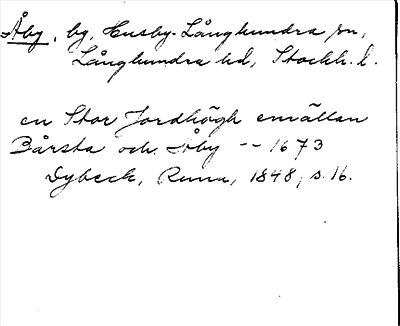 Åby, bg, Husby-Långhundra sn,
Långhundra hd, Stockh. l.
en Stor Jordhögh emällan
Bårsta och Åby -- 1673
Dybeck, Runa, 1848, s. 16.